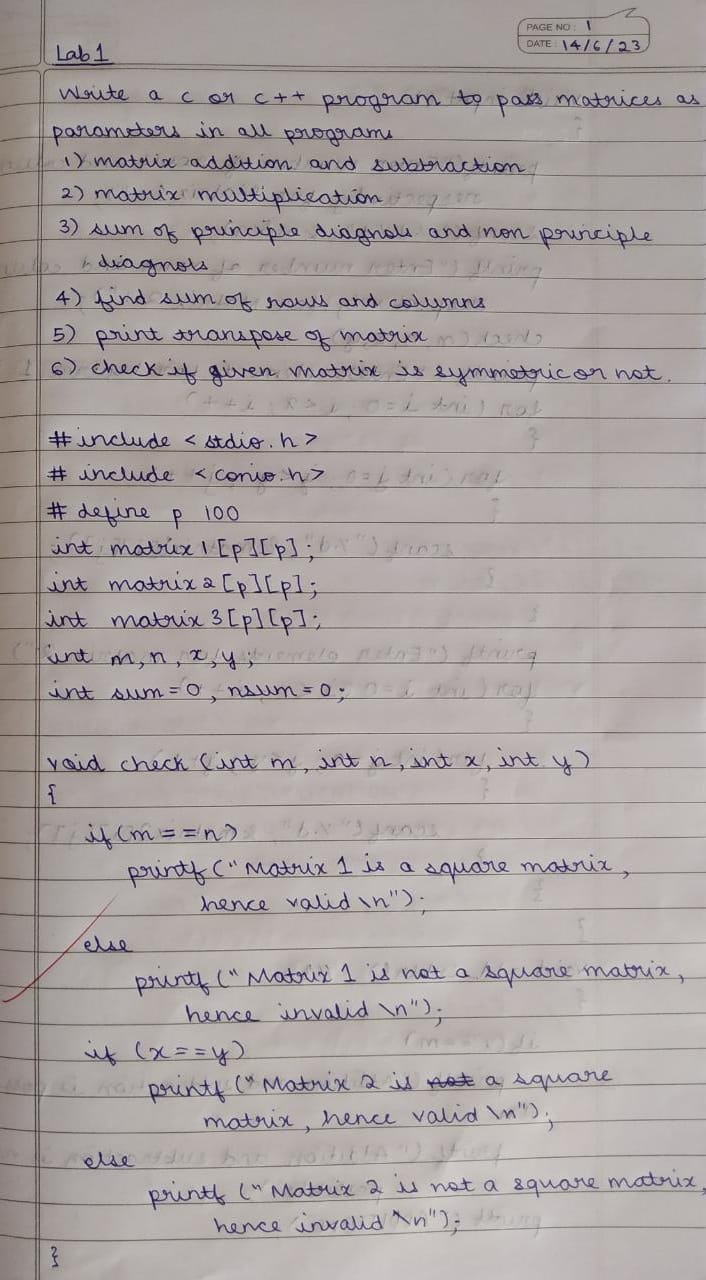 PAGE NO : 1
DATE : 14/6/23
Lab 1
Write a c or c++ program to pass matrices as
parameters in all programs
1) matrix addition and subtraction
2) matrix multiplication
3) sum of principle diagnols and non principle
diagnols
4) find sum of rows and columns
5) print transpose of matrix
6) check if given matrix is symmetric or not.
# include < stdio.h >
# include < conio.h >
# define p 100
int matrix 1 [p][p];
int matrix 2 [p][p];
int matrix 3 [p][p];
int m, n, x, y;
int sum = 0, nsum = 0;
void check (int m, int n, int x, int y)
{
if (m == n)
printf (" Matrix 1 is a square matrix,
hence valid \n");
else
printf (" Matrix 1 is not a square matrix,
hence invalid \n");
if (x == y)
printf (" Matrix 2 is not a square
matrix, hence valid \n");
else
printf (" Matrix 2 is not a square matrix,
hence invalid \n");
}